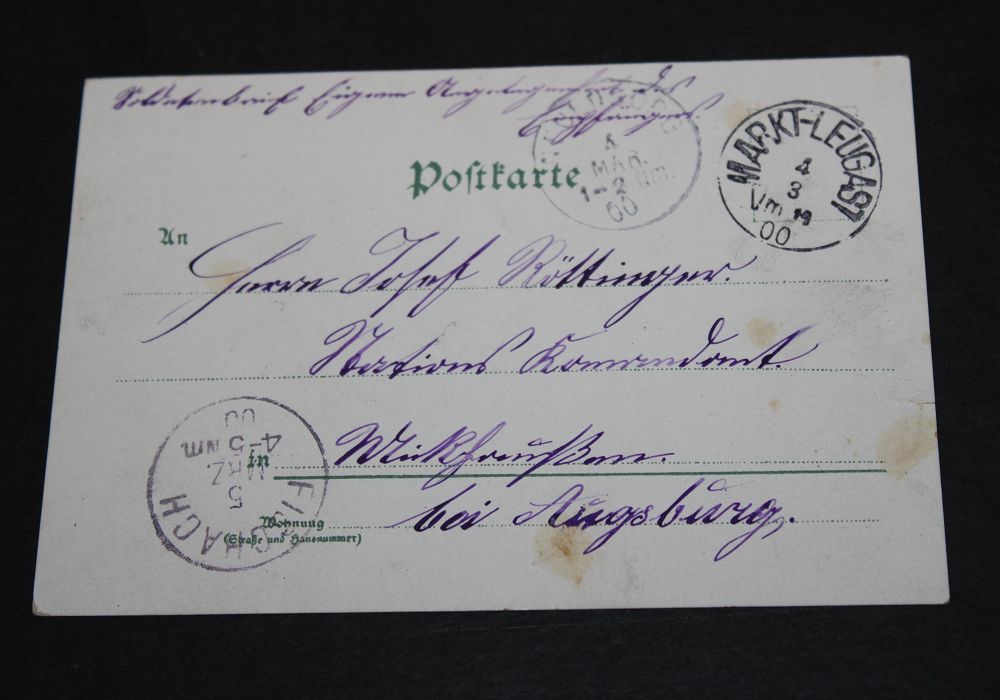 Soldatenbrief Eigene Angelegenheit des
Empfängers.
Postkarte
4
MAR.
1-2 Nm.
00
MARKT-LEUGAST
4
3
Vm 11
00
An
Herrn Josef Röttinger.
Stations Komandant.
in Mickhaußen.
bei Augsburg.
Wohnung
(Straße und Hausnummer)
FISCHACH
5
MRZ
4-5 Nm.
00